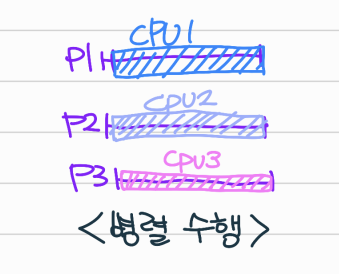 CPU1
P1
CPU2
P2
CPU3
P3
<병렬 수행>